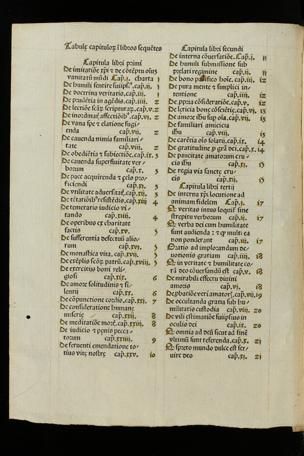 Tabule capitulorum i libros sequētes
Capitula libri primi
De imitatiōe xpi et de cōtēptu oīm
vanitatū mūdi Cap. i. charta 1
De humili sentire suiipsiꝰ. cap. ii. 1
De doctrina veritatis. cap. iii. 1
De prudētia in agēdis. cap. iiii. 2
De lectiōe scripturarum. cap. v. 2
De inordinatis affectiōibꝰ. cap. vi. 2
De vana spe et elatione fugi-
enda cap. vii. 2
De cauenda nimia familiari-
tate cap. viii. 2
De obediētia et subiectiōe. cap. ix. 3
De cauenda superfluitate ver-
borum cap. x. 3
De pace acquirenda et zelo pro-
ficiendi cap. xi. 3
De vtilitate aduersitatis. cap. xii. 3
De tētatiōibꝰ resistēdis. cap. xiii 4
De temerario iudicio vi-
tando cap. xiiii. 4
De operibus ex charitate
factis cap. xv. 5
De sufferentia defectuū alio-
rum cap. xvi. 5
De monastica vita. cap. xvii. 5
De exēplis scōrum patrū. cap. xviii. 5
De exercitiis boni reli-
giosi cap. xix. 6
De amore solitudinis et si-
lentii cap. xx. 6
De cōpunctione cordis. cap. xxi. 7
De consideratione humane
miserie cap. xxii. 8
De meditatiōe mortis. cap. xxiii. 8
De iudicio et penis pecca-
torum cap. xxiiii. 9
De feruenti emendatione to-
tius vite nostre cap. xxv. 10
Capitula libri secundi
De interna cōuersatiōe. Cap. i. 11
De humili submissione sub
prelati regimine cap. ii. 11
De bono pacifico hoīe. cap. iii. 12
De pura mente et simplici in-
tentione cap. iiii. 12
De propria cōsideratiōe. cap. v. 12
De leticia bone cōsciētie. cap. vi. 12
De amore iesu sup oīa. cap. vii. 13
De familiari amicicia
iesu cap. viii. 13
De carētia oīs solatii. cap. ix. 13
De gratitudine pro gratia dei. cap. x. 14
De paucitate amatorum cru-
cis cap. xi. 15
De regia via sancte cru-
cis cap. xii. 15
Capitula libri tertii
De interna xpi locutione ad
animam fidelem Cap. i. 17
Q veritas intus loquitur sine
strepitu verborum cap. ii. 17
Q verba dei cum humilitate
sunt audienda et quod multi ea
non ponderant cap. iii. 17
Oratio ad implorandum de-
uotionis gratiam cap. iiii. 18
Q in veritate et humilitate co-
ram deo cōuersandū est cap. v. 18
De mirabili effectu diuini
amoris cap. vi. 18
De probatiōe veri amatoris. cap. vii. 19
De occultanda gratia sub hu-
militatis custodia cap. viii. 20
De vili estimatiōe suiipsius in
oculis dei cap. ix. 20
Q omnia ad deū sicut ad finē
vltimū sunt referenda. cap. x. 21
Q spreto mundo dulce est ser-
uire deo cap. xi. 21